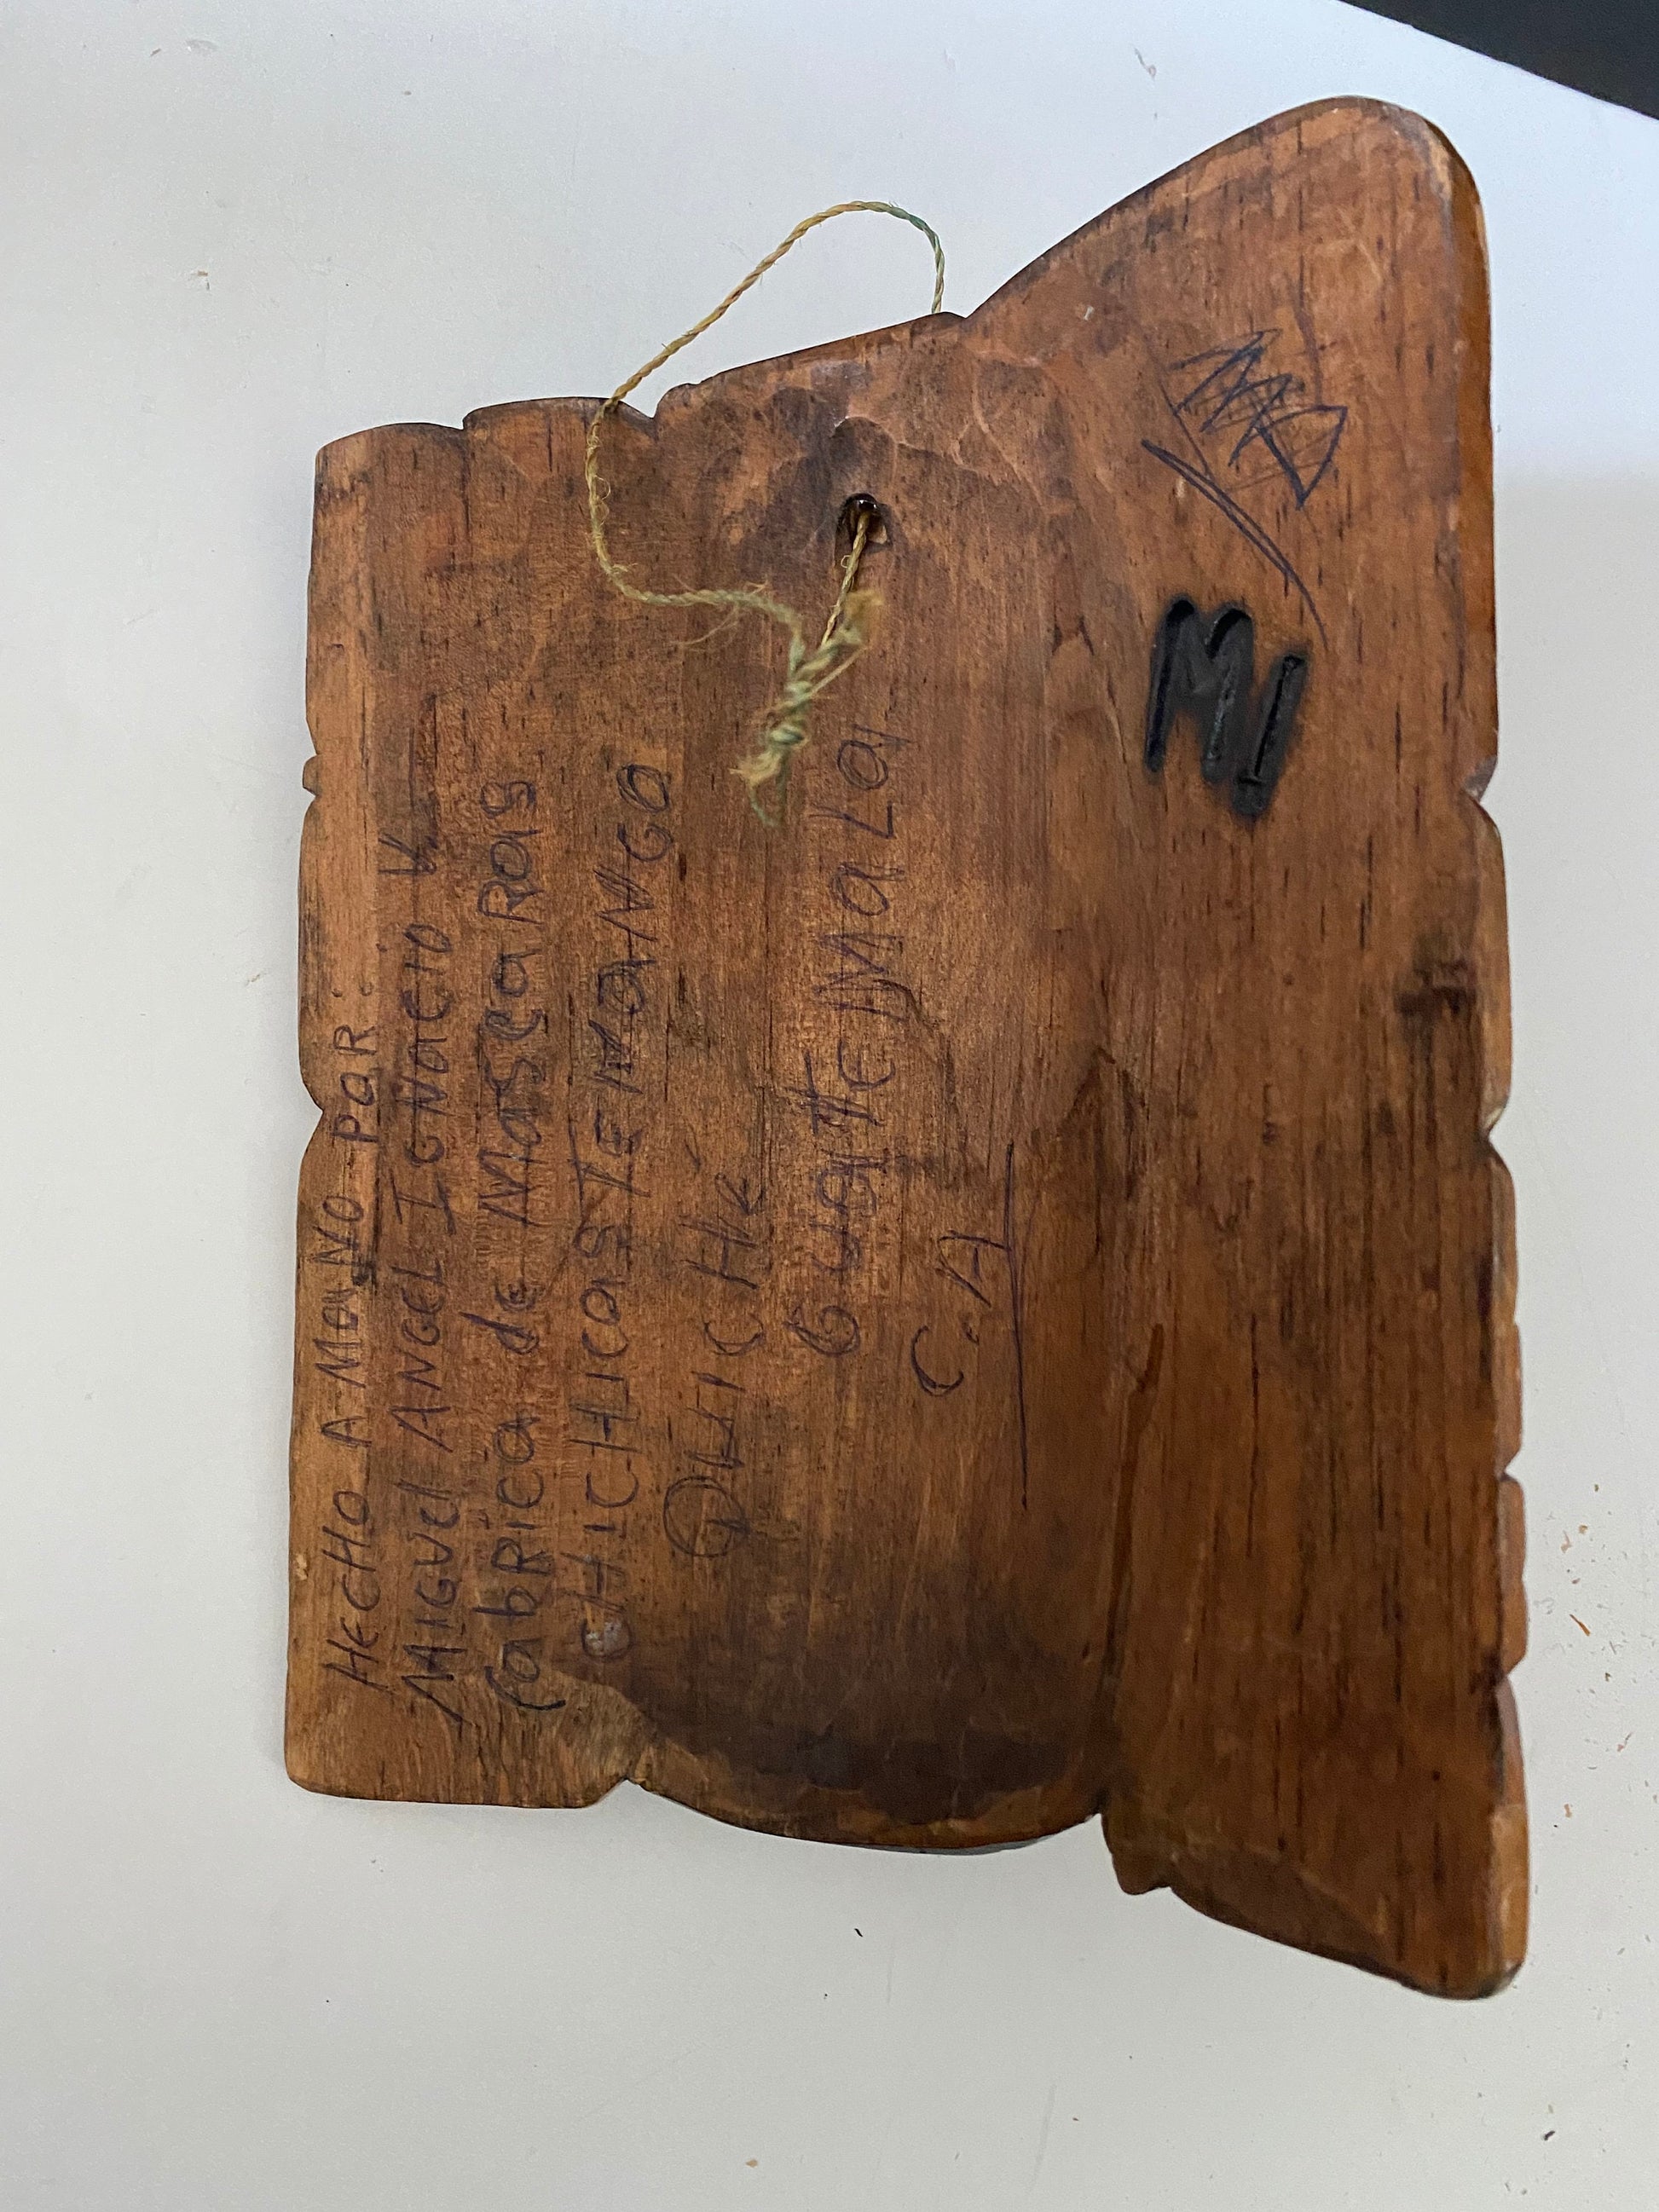 HECHO A MaNO POR:
MIGUEl ANGEL IGNACIO K
fabRica de MasCaRas
CHICHICasTENaNGO
QUICHÉ
GuaTEMaLa
C.A
MI